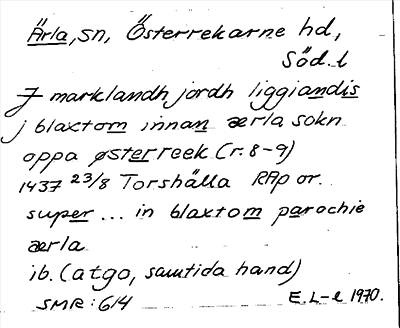 Ärla, sn, Österrekarne hd,
Söd. l
J marklandh jordh liggiandis
j blaxtom innan ærla sokn
oppa østerreek (r. 8-9)
1437 23/8 Torshälla RAp or.
super ... in blaxtom parochie
ærla
ib. (atgo, samtida hand)
SMR: 614 E. L-l 1970.